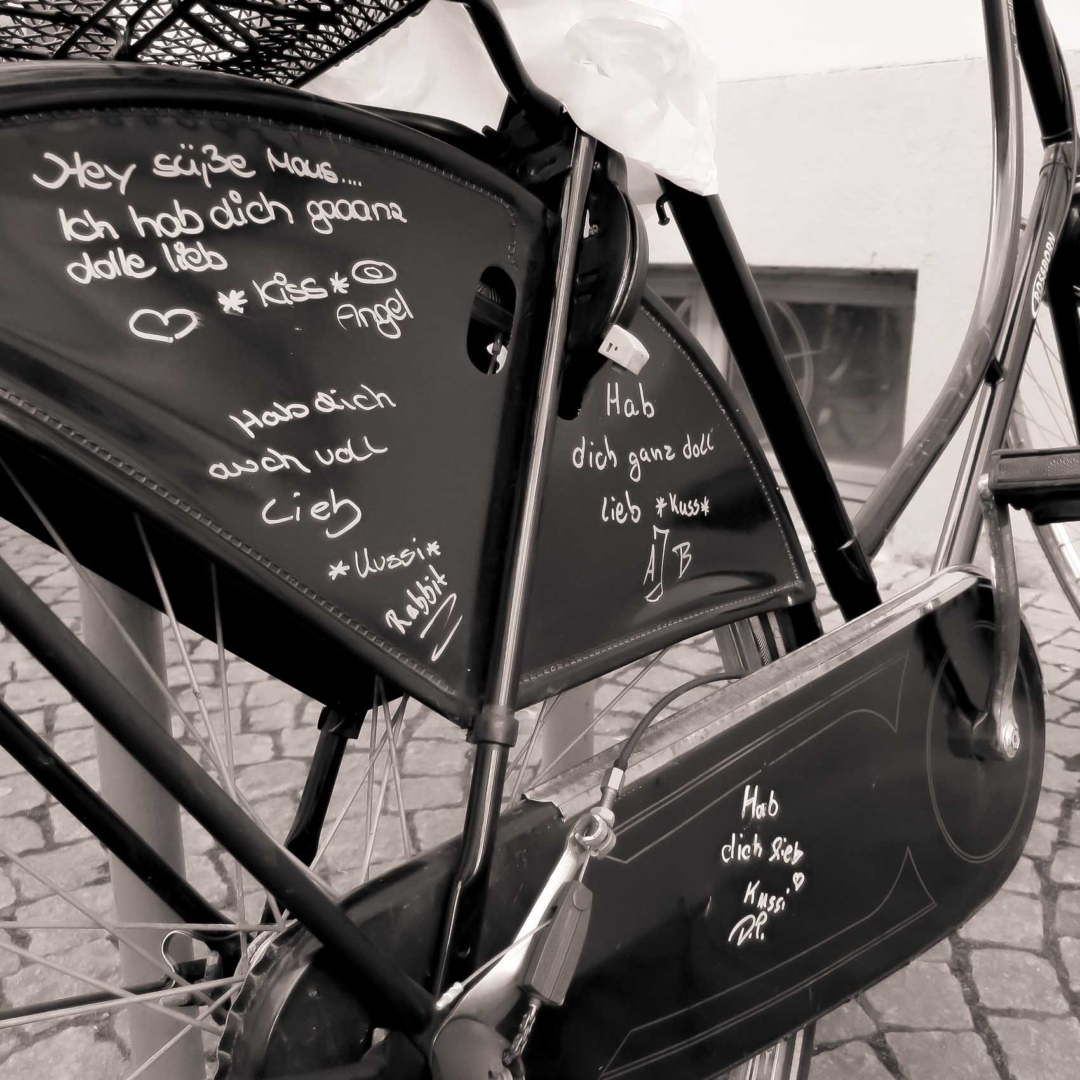 Hey süße Maus....
Ich hab dich gaaanz
dolle lieb
*Kiss*
Angel
Hab dich
auch voll
Lieb
*Kussi*
Rabbit
Hab
dich ganz doll
lieb *Kuss*
AJB
Hab
dich lieb
Kussi
D.P.